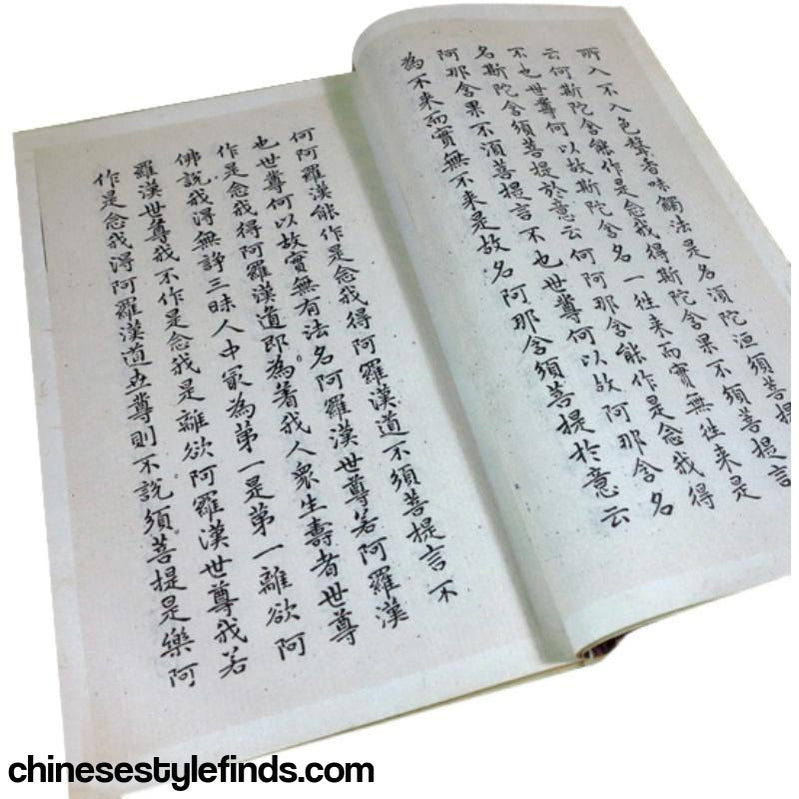 所入不入色聲香味觸法是名湏陀洹須菩提
云何斯陀含能作是念我得斯陀含果不須菩提言
不也世尊何以故斯陀含名一往来而實無往来是
名斯陀含須菩提於意云何阿那含能作是念我得
阿那含果不湏菩提言不也世尊何以故阿那含名
為不来而實無不来是故名阿那含須菩提於意云
何阿羅漢能作是念我得阿羅漢道不須菩提言不
也世尊何以故實無有法名阿羅漢世尊若阿羅漢
作是念我得阿羅漢道即為著我人衆生壽者世尊
佛說我得無諍三昧人中冣為第一是第一離欲阿
羅漢世尊我不作是念我是離欲阿羅漢世尊我若
作是念我得阿羅漢道世尊則不說須菩提是樂阿
chinesestylefinds.com